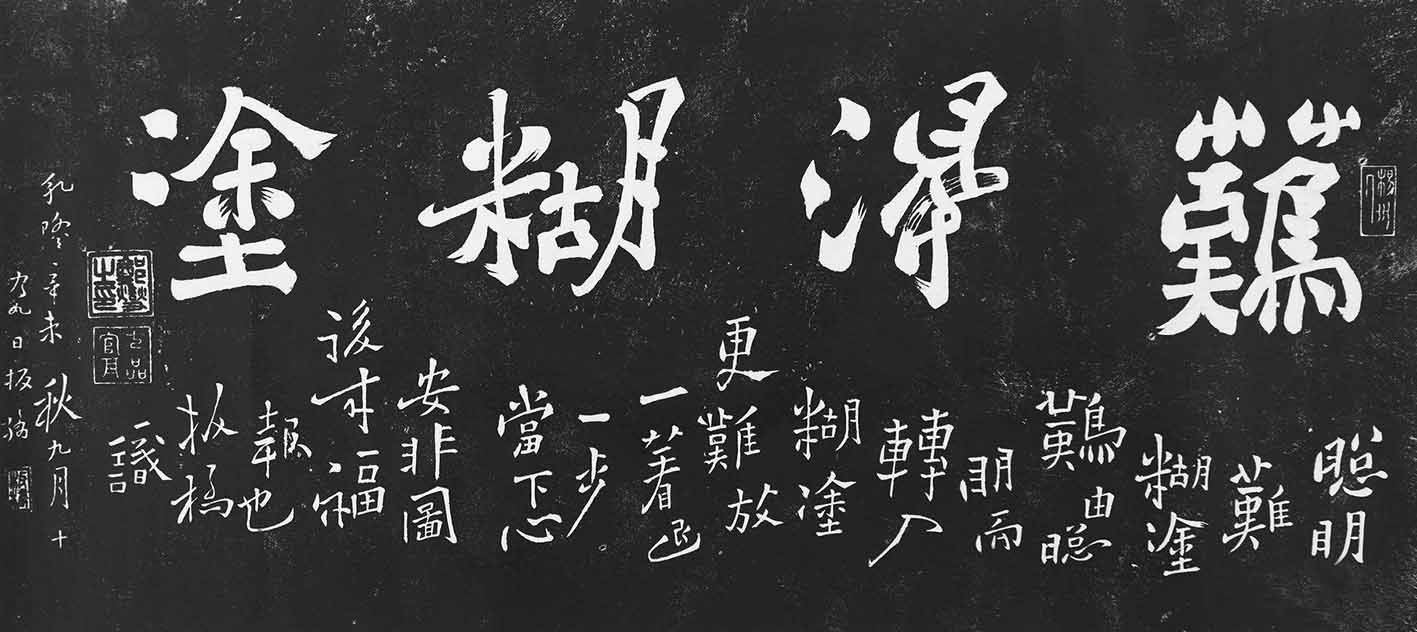 難得糊塗
聰明
難
糊塗
難由聰
明而
轉入
糊塗
更難放
一著退
一步
當下心
安非圖
後来福
報也
板橋
識
乾隆辛未秋九月十
有九日板橋
鄭燮之印
七品官耳